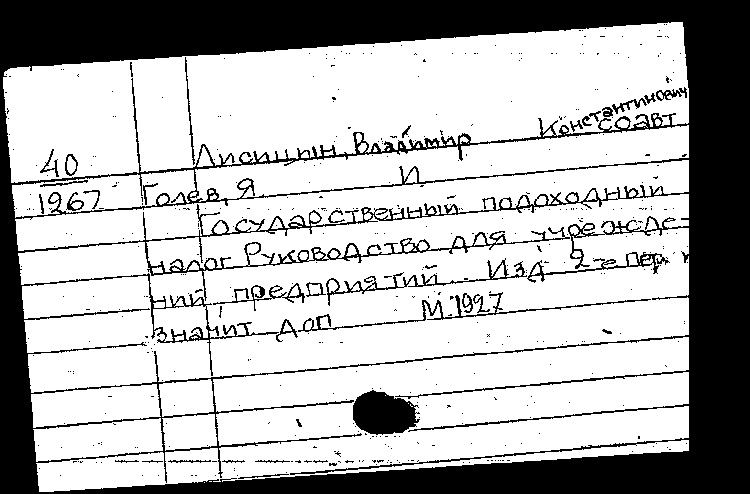 Константинович
40 Лисицын, Владимир соавт
1267 Голев, Я. И
Государственный подоходный
налог Руководство для учрежде-
ний, предприятий. Изд 2-е пер. и
значит. доп М. 1927